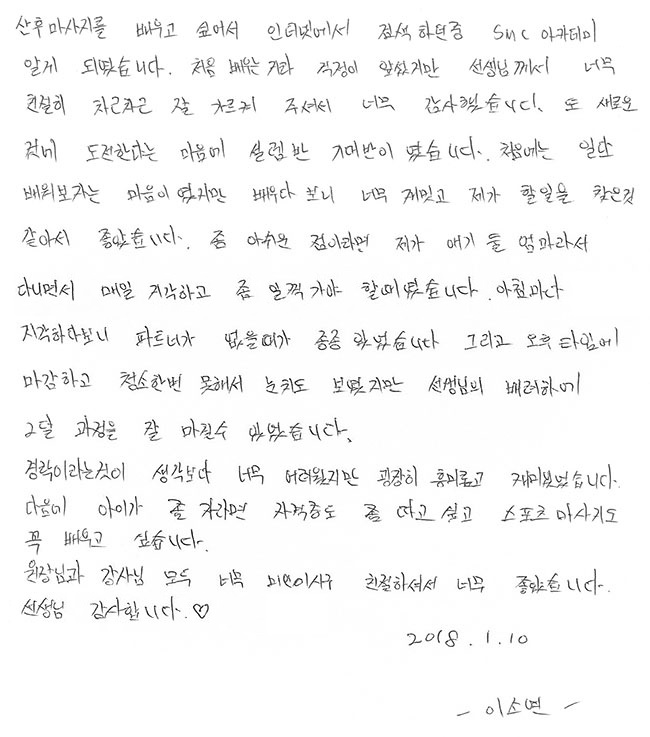 산후마사지를 배우고 싶어서 인터넷에서 검색 하던중 SMC 아카데미
알게 되었습니다. 처음 배우는거라 걱정이 앞섰지만 선생님께서 너무
친절히 차근차근 잘 가르쳐 주셔서 너무 감사했습니다. 또 새로운
것에 도전한다는 마음에 설렘반 기대반이 였습니다. 처음에는 일단
배워보자는 마음이 였지만 배우다 보니 너무 재밌고 제가 할일을 찾은것
같아서 좋았습니다. 좀 아쉬운 점이라면 제가 애기 둘 엄마라서
다니면서 매일 지각하고 좀 일찍 가야 할때였습니다. 아침마다
지각하다보니 파트너가 없을때가 종종 있었습니다 그리고 오후타임에
마감하고 청소한번 못해서 눈치도 보였지만 선생님의 배려하에
2달 과정을 잘 마칠수 있었습니다.
경락이라는것이 생각보다 너무 어려웠지만 굉장히 흥미롭고 재미있었습니다.
다음에 아이가 좀 자라면 자격증도 좀 따고 싶고 스포츠 마사지도
꼭 배우고 싶습니다.
원장님과 강사님 모두 너무 미인이시구 친절하셔서 너무 좋았습니다.
선생님 감사합니다.♡
2018.1.10
- 이소연 -